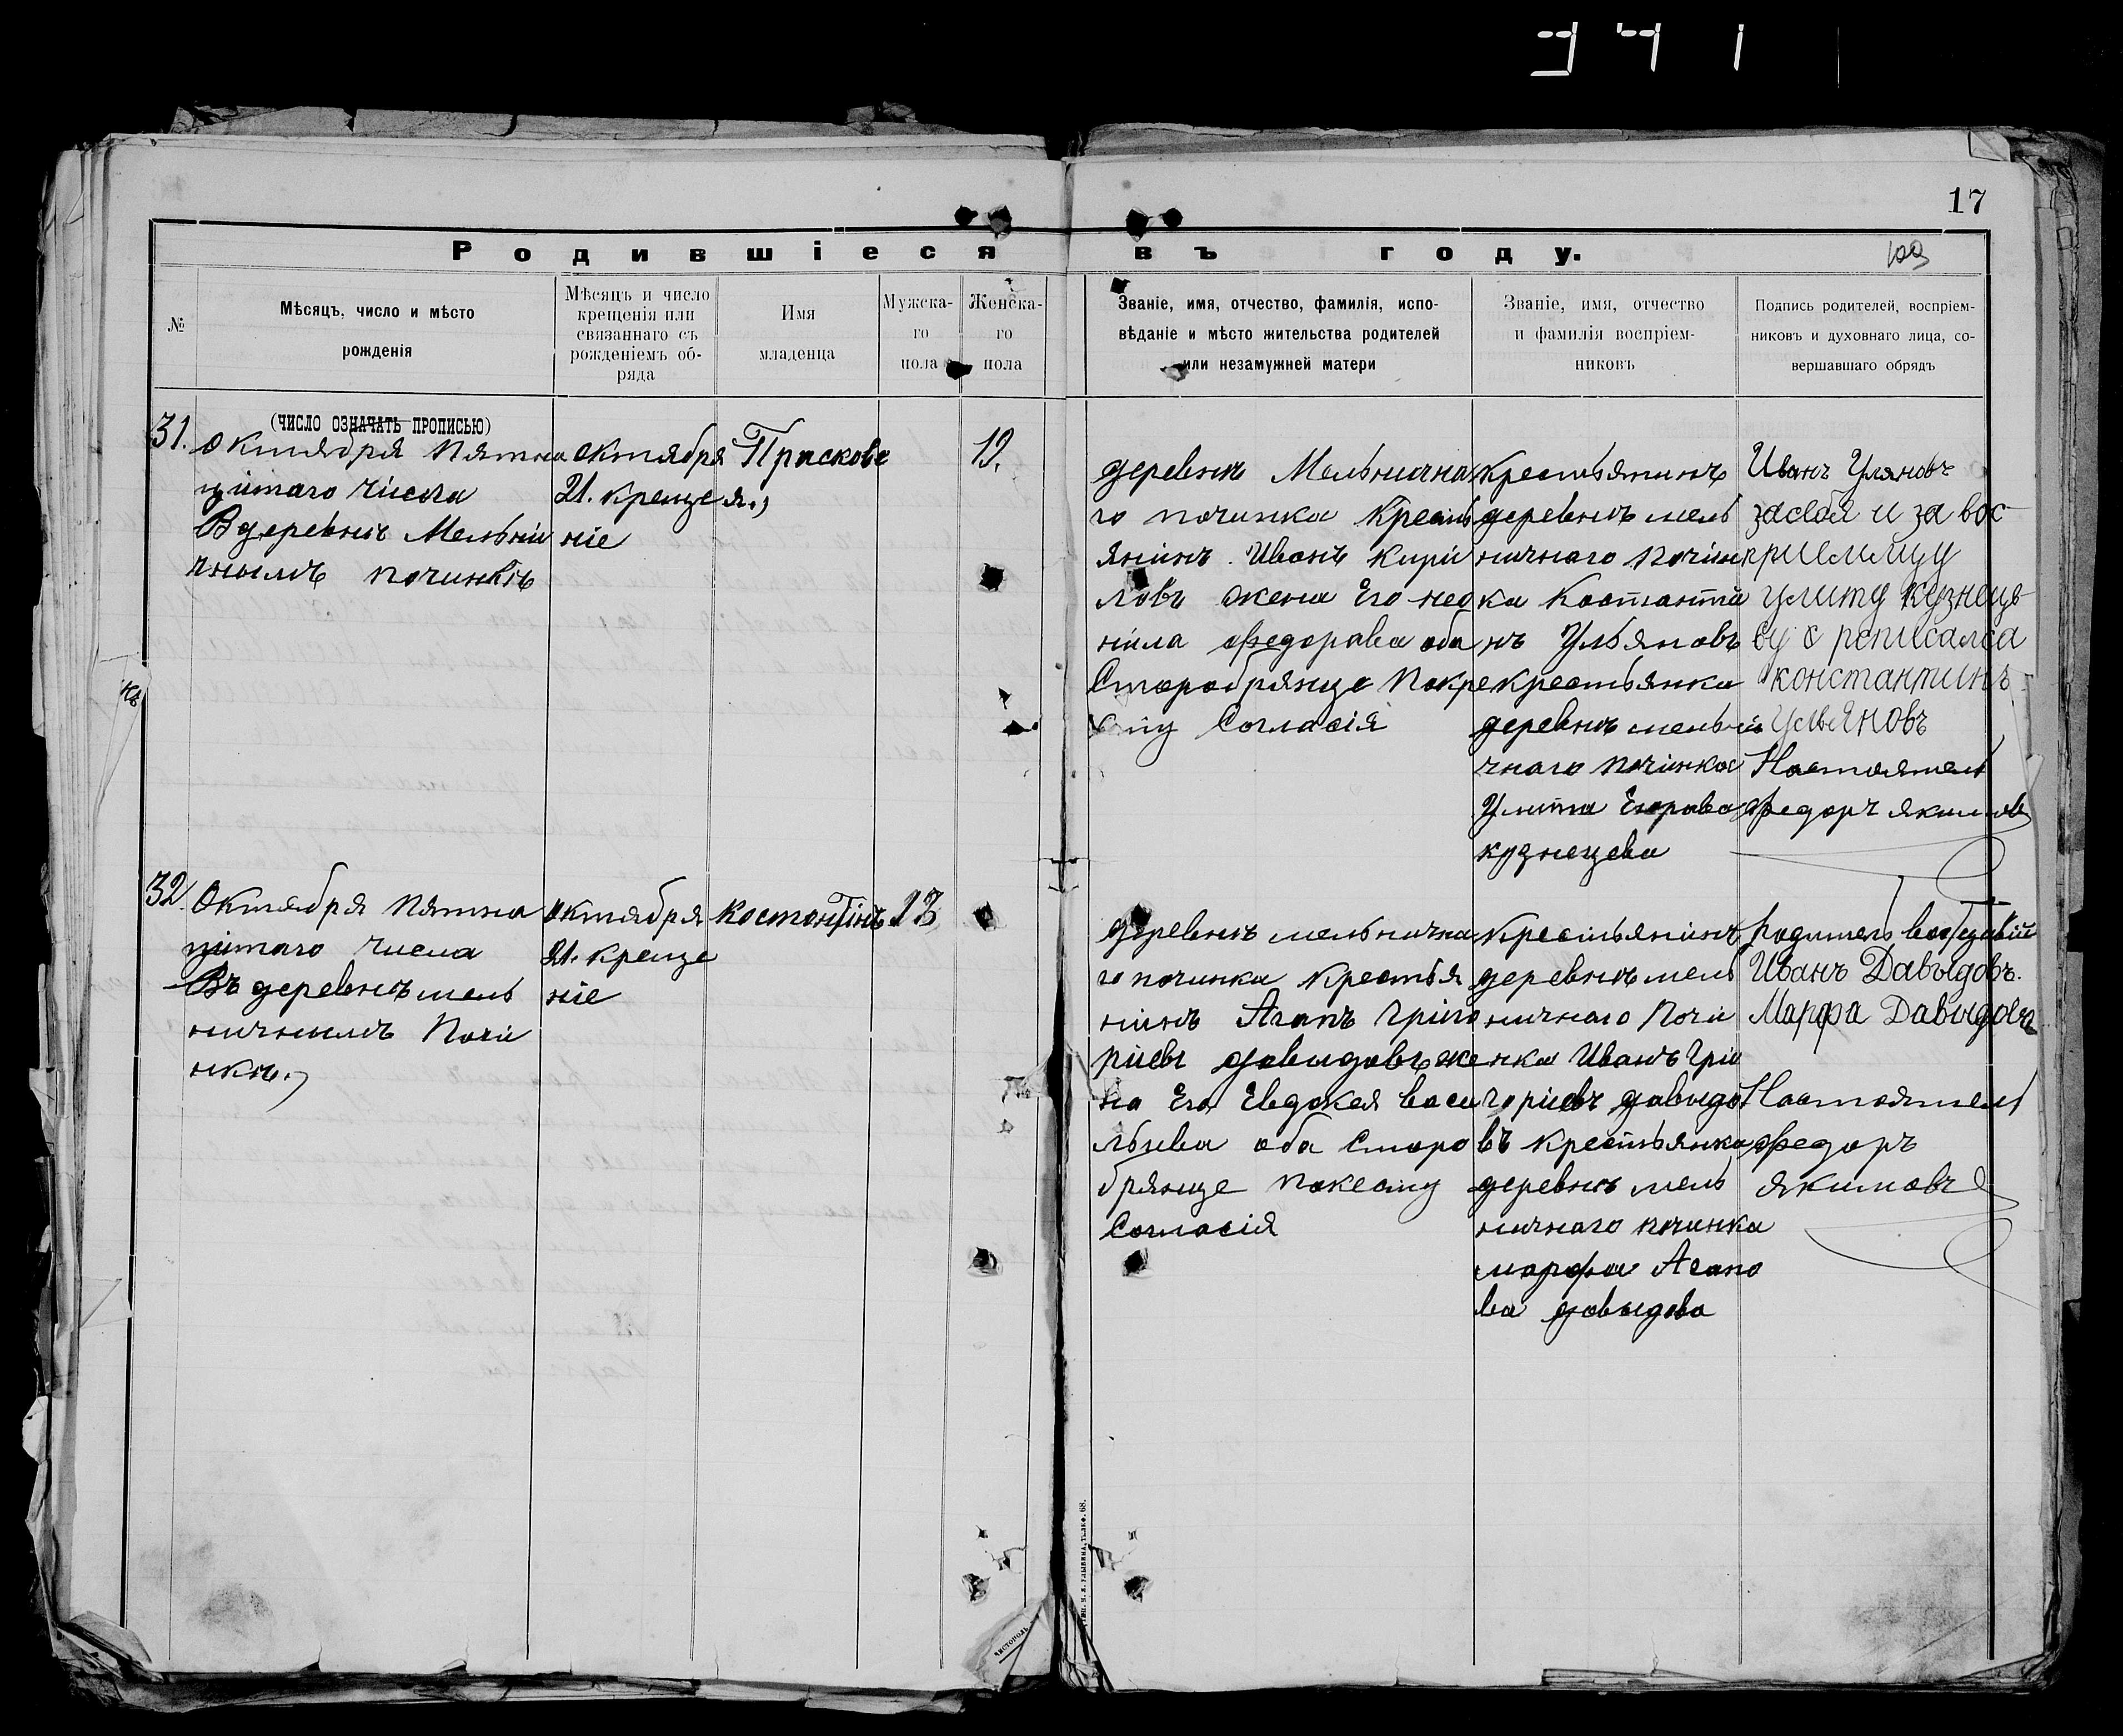 17
109
Родившіеся въ году.
№
Мѣсяцъ, число и мѣсто
рожденія
Мѣсяцъ и число
крещенія или
связаннаго съ
рожденіемъ об-
ряда
Имя
младенца
Мужска-
го
пола
Женска-
го
пола
Званіе, имя, отчество, фамилія, испо-
вѣданіе и мѣсто жительства родителей
или незамужней матери
Званіе, имя, отчество
и фамилія воспріем-
никовъ
Подпись родителей, воспріем-
никовъ и духовнаго лица, со-
вершавшаго обрядъ
(ЧИСЛО ОЗНАЧАТЬ ПРОПИСЬЮ)
31.
Октября Пятна
цітаго числа
В деревнѣ Мельні
чнымъ починкѣ
октября
21. креще
ніе
Праскове
я.,
19.
деревнѣ Мельнична
го починка Кресть
янінъ Иванъ Кири
ловъ жена Его нео
ніла федорава оба
Старобрянце Покре
сту Согласія
крестьянинъ
деревнѣ мель
ничнаго Почин
ка Костантѣ
нъ Ульяновъ
крестьянка
деревнѣ мельні
чнаго почінка
Улита Егорова
кузнецева
Иванъ Уляновъ
засебя и за вос
приеммцу
улиту кузнецо
ву с рописался
константинъ
Ульяновъ
Настоятель
Федоръ якимовъ
32.
Октября пятна
цітаго числа
Въ деревнѣ мель
ничнымъ Почі
нкѣ.,
октября
21. креще
ніе
Костонтінъ
13
деревнѣ мельнична
го починка крестья
нінъ Агапъ Григо
риевъ довыдовъ же
на Его Евдокея васи
льева оба Старо
брянце покесту
Согласія
Крестьянінъ
деревнѣ мель
ничнаго Почи
нка Иванъ Гри
гориевъ довыдо
въ крестьянка
деревнѣ мель
ничнаго починка
марфа Агапо
ва довыдова
Иванъ Давыдовъ.
Марфа Давыдова
Настоятель
Федоръ
якимовъ
чистополь